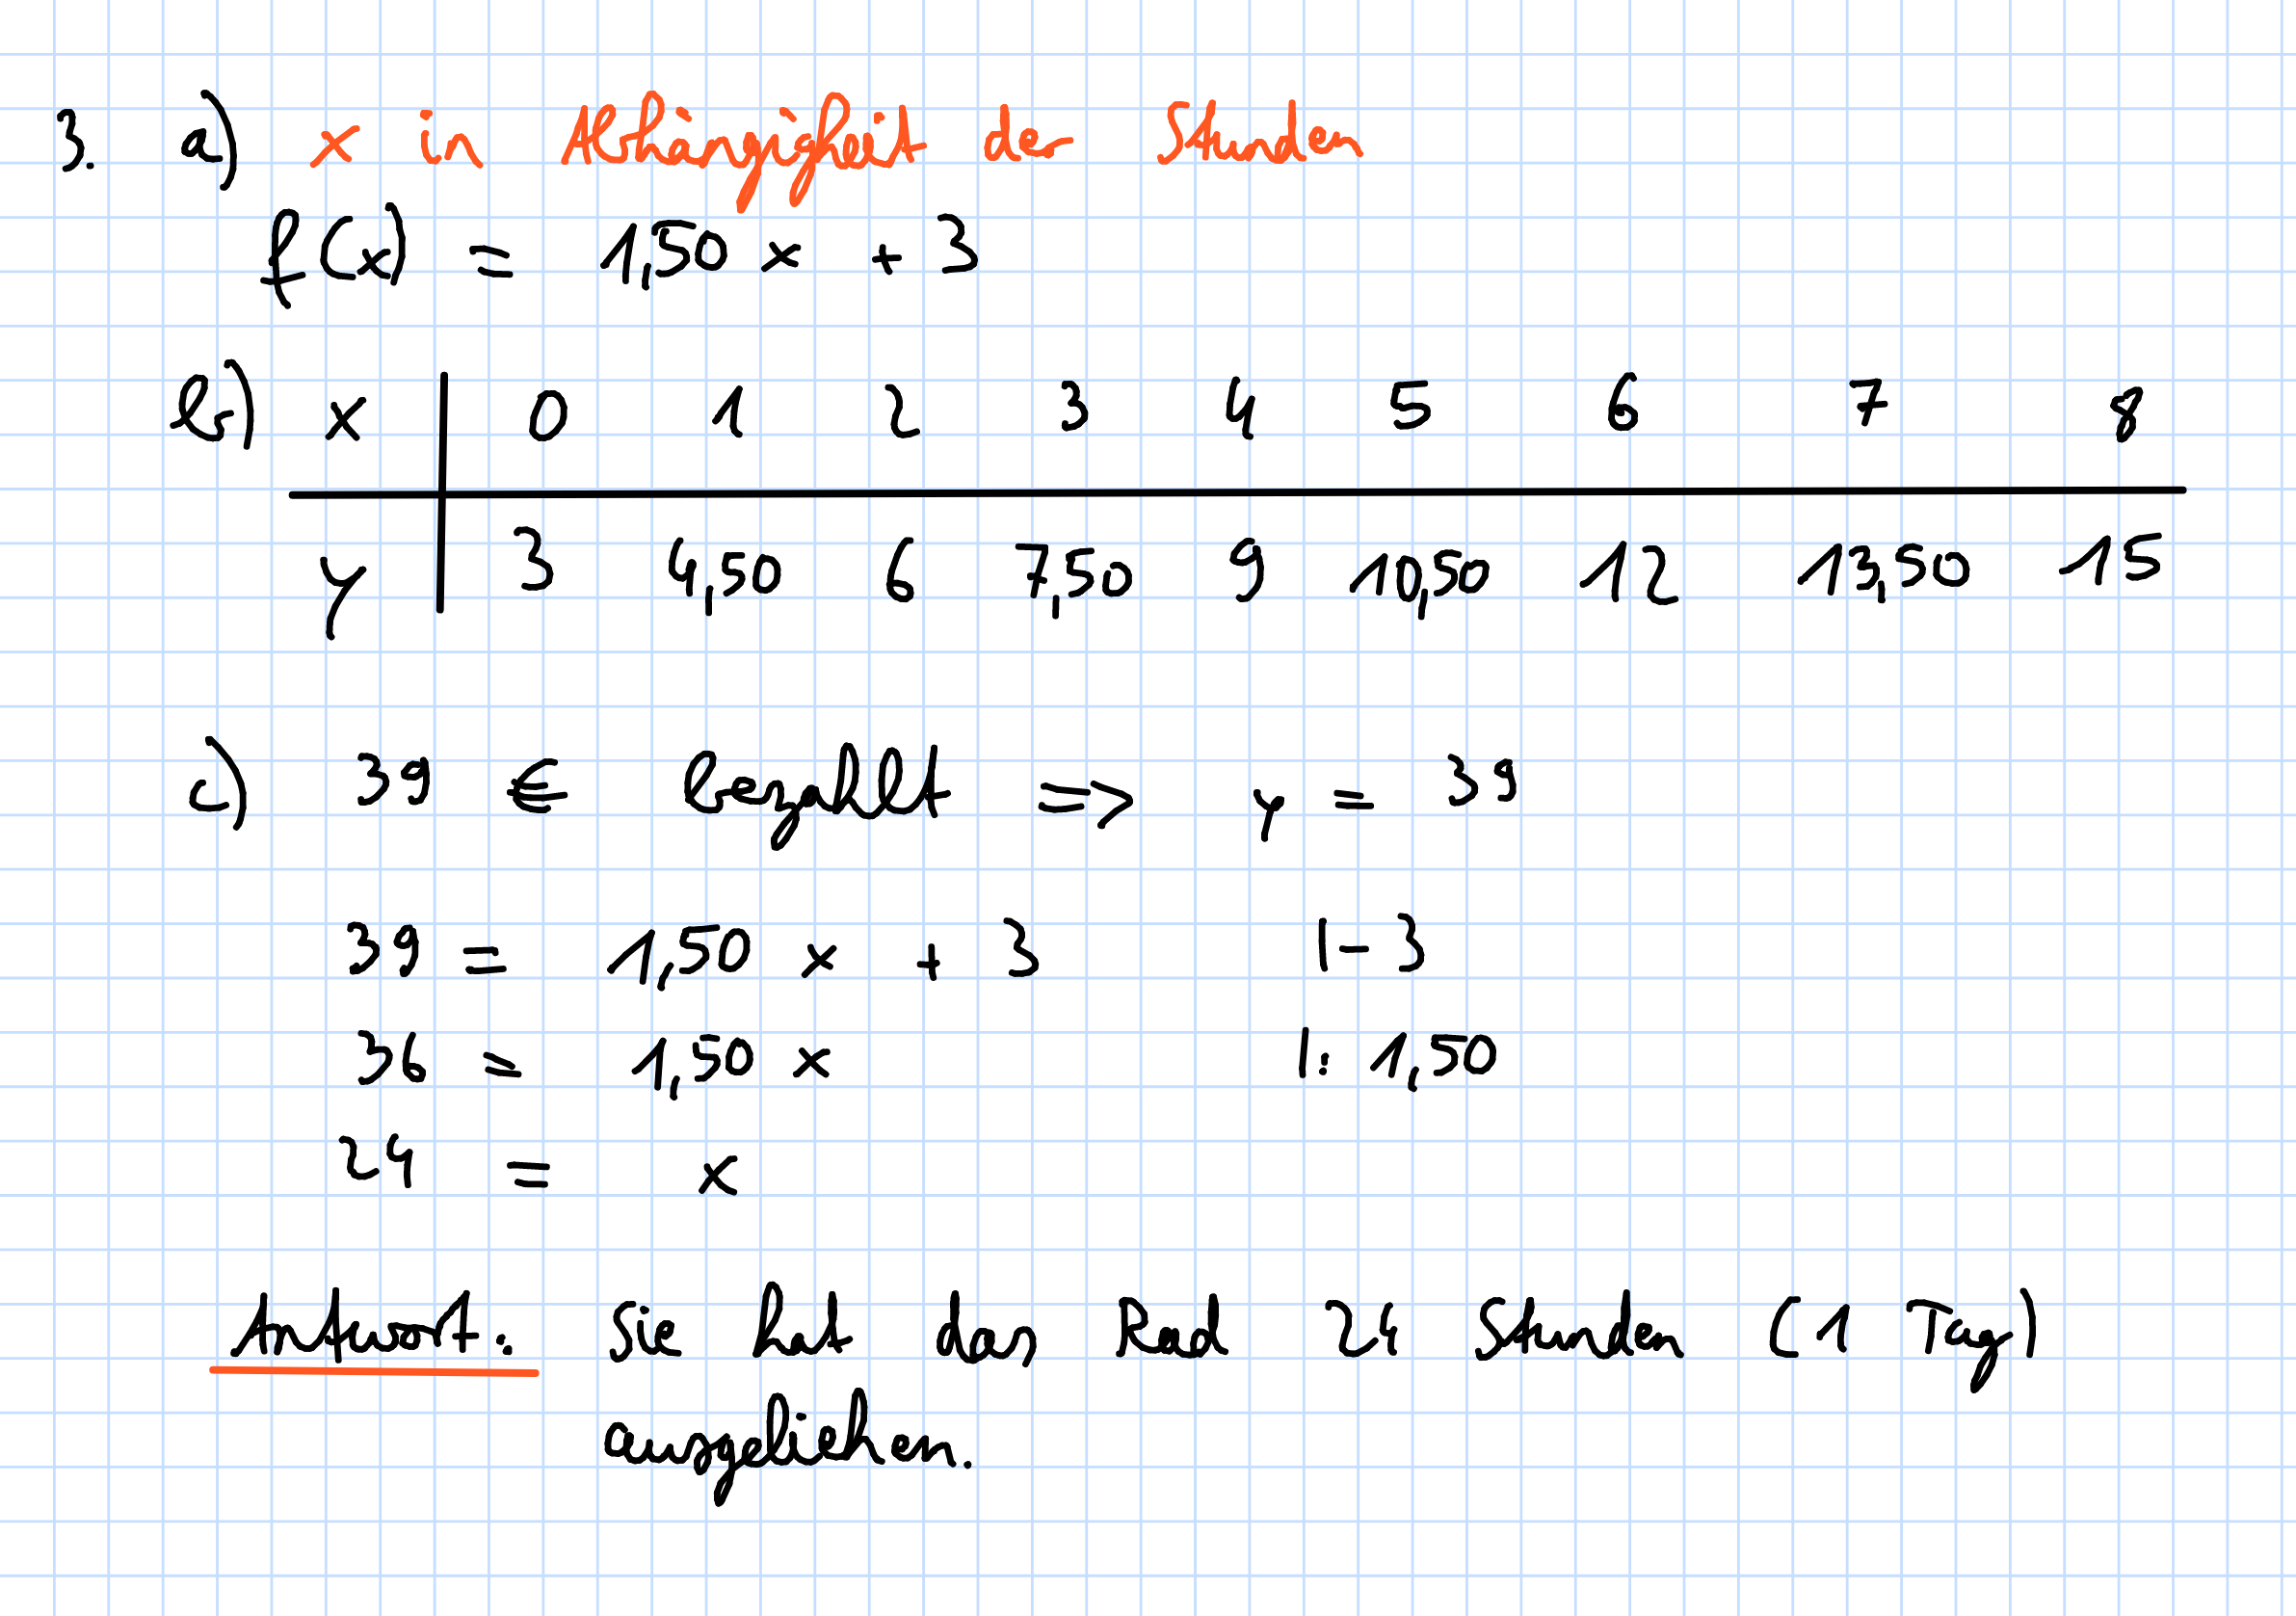 3. a) x in Abhängigkeit der Stunden
f(x) = 1,50 x + 3
b) x 0 1 2 3 4 5 6 7 8
y 3 4,50 6 7,50 9 10,50 12 13,50 15
c) 39 € bezahlt => y = 39
39 = 1,50 x + 3 |-3
36 = 1,50 x |: 1,50
24 = x
Antwort: Sie hat das Rad 24 Stunden (1 Tag)
ausgeliehen.